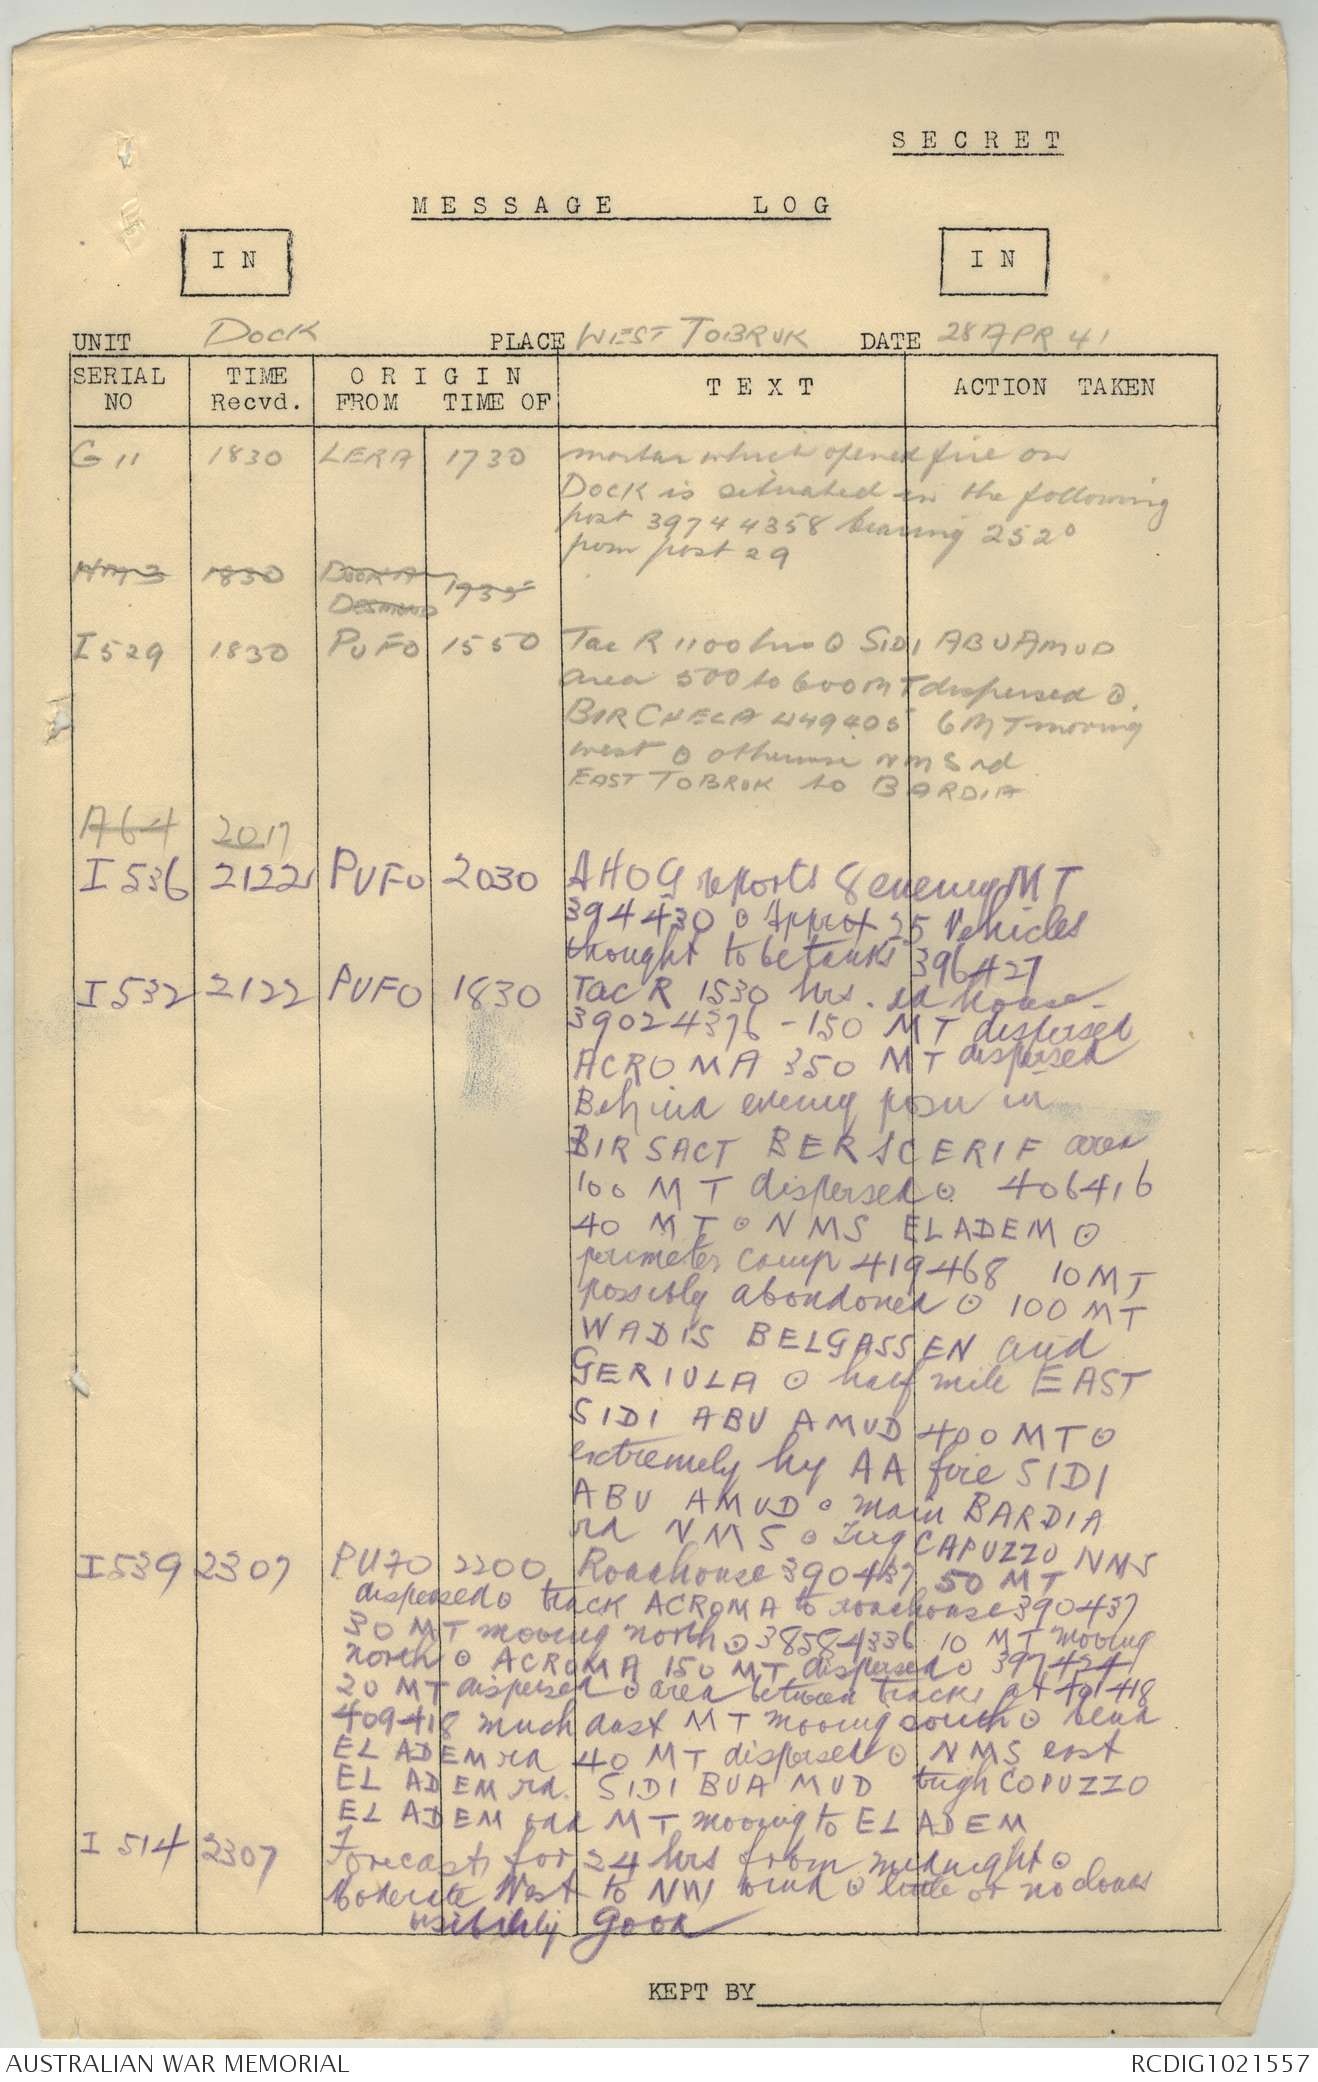 SECRET
MESSAGE LOG
IN
IN
UNIT Dock PLACE WEST TOBRUK DATE 28 APR 41
SERIAL NO TIME Recvd. ORIGIN FROM TIME OF TEXT ACTION TAKEN
G 11 1830 LERA 1730 mortar which opened fire on
DOCK is situated in the following
post 39744358 bearing 252°
from post 29
1830 DOCK A 1735
DESMOND
I 529 1830 PUFO 1550 Tac R 1100 hrs ⊙ SIDI ABU AMUD
area 500 to 600 MT dispersed ⊙
BIR CHELA 449405 6 MT moving
west ⊙ otherwise NMS rd
EAST TOBRUK to BARDIA
A64 2017
I 536 2122 PUFO 2030 AHOG reports 8 enemy MT
394430 ⊙ Approx 25 Vehicles
thought to be tanks 396427
I 532 2122 PUFO 1830 Tac R 1530 hrs. rd house -
39024376 - 150 MT dispersed
ACROMA 350 MT dispersed
Behind enemy posn in
BIR SACT BER SCERIF area
100 MT dispersed ⊙ 406416
40 MT ⊙ NMS EL ADEM ⊙
perimeter camp 419468 10 MT
possibly abondoned ⊙ 100 MT
WADIS BELGASSEN and
GERIULA ⊙ half mile EAST
SIDI ABU AMUD 400 MT ⊙
extremely hy AA fire SIDI
ABU AMUD ⊙ main BARDIA
rd NMS ⊙ Trig CAPUZZO NMS
I 539 2307 PUFO 2200 Roadhouse 390437 50 MT
dispersed ⊙ track ACROMA to roadhouse 390437
30 MT mooving north ⊙ 38584336 10 MT mooving
north ⊙ ACROMA 150 MT dispersed ⊙ 397434
20 MT dispersed ⊙ area between tracks at 401418
409418 much dust MT mooving south ⊙ bend
EL ADEM rd 40 MT dispersed ⊙ NMS east
EL ADEM rd. SIDI BUA MUD tugh COPUZZO
EL ADEM odd MT mooving to EL ADEM
I 514 2307 Forecast for 24 hrs from midnight ⊙
Moderate West to NW wind ⊙ little or no clouds
visibility good
KEPT BY
AUSTRALIAN WAR MEMORIAL RCDIG1021557